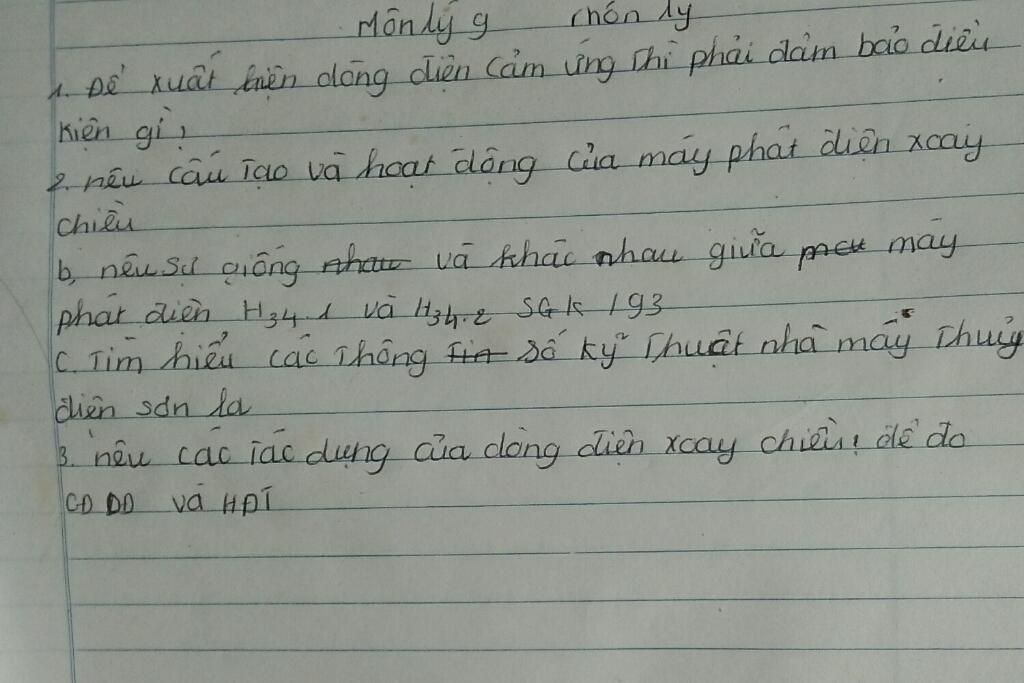 Môn lý 9 chọn lý
1. Để xuất hiện dòng điện cảm ứng thì phải đảm bảo điều
kiện gì?
2. nêu cấu tạo và hoạt động của máy phát điện xoay
chiều
b, nêu sự giống nhau và khác nhau giữa máy
phát điện H34.1 và H34.2 SGK / 93
C. Tìm hiểu các thông số kỹ thuật nhà máy Thuỷ
điện sơn la
3. nêu các tác dụng của dòng điện xoay chiều! để đo
CĐ DĐ và HĐT